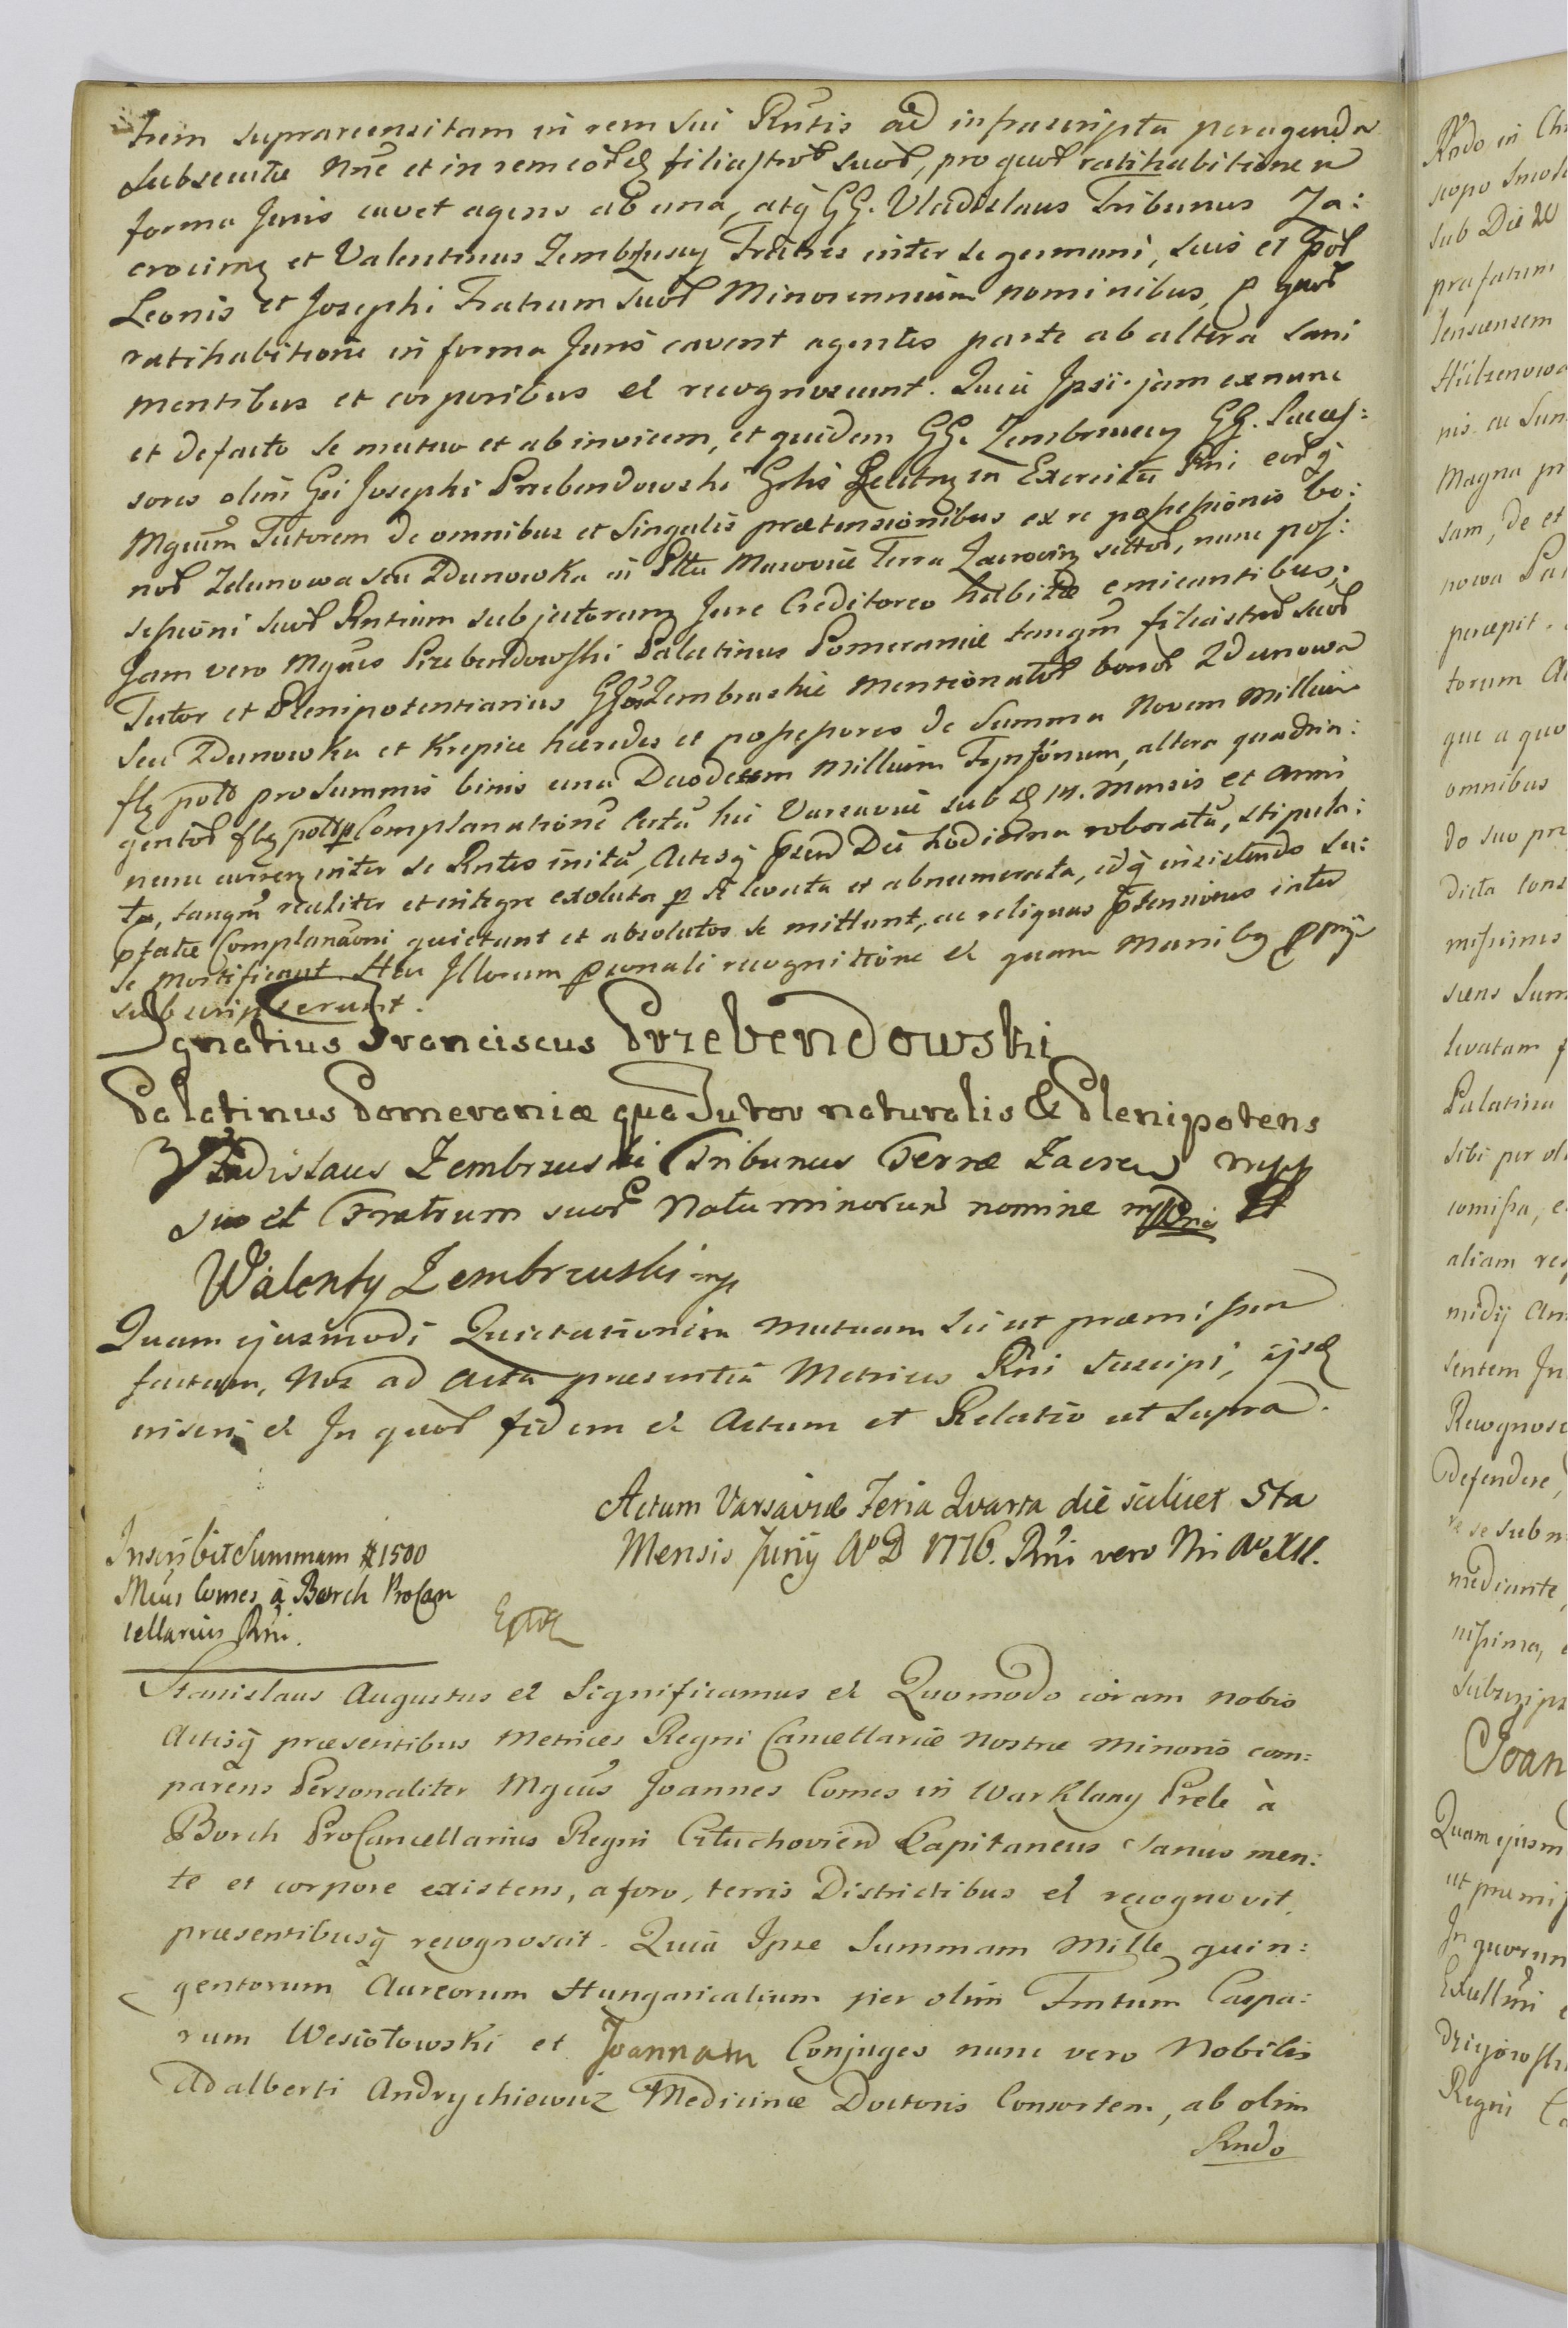 trem suprarecensitam in rem sui Rntis ad infrascripta peragenda
subsecuta Nne et in rem eord filiastrod suod, pro quod ratihabitione in
forma Juris cavet agens ab una, atq GG. Vladislaus Tribunus Za:
crocimz et Valentinus Zembrzuscy Fratres inter se germani, suis et
Leonis et Josephi Fratrum suod Minorennium nominibus, p quod
ratihabitione in forma Juris cavent agentes parte ab altera sani
mentibus et corporibus et recognoverunt. Quia Ipsi jam exnunc
et defacto se mutuo et abinvicem, et quidem GG. Zembrzuscy GG. Succes:
sores olim Gsi Josephi Przebendowski in Exercitu Rni eodq
Mgcum Tutorem de omnibus et singulis prætensionibus ex re possessionis bo:
nod Zdunowa seu Zdunowka in Pttu Mazoviæ Terra Zacrocimz sittod, nunc pos:
sessioni suod Rntium subjectorum Jure Creditoreo habitæ emicantibus,
Jam vero Mgcus Przebendowski Palatinus Pomeraniæ tanqm filiastrod suod
Tutor et Plenipotentiarius GGos Zembruskie mentionatod bonod Zdunowa
seu Zdunowka et Krepice hæredes et possessores de Summa Novem Millium
flz pold pro Summis binis una Duodecem Millium Tynfonum, altera quadrin:
gentod flz pold p Complanatione certa hic Varsaviæ sub d 14. Mensis et Anni
nunc curren inter se Rntes inita, Actisq prsen Die hodierna roborata, stipula:
ta, tanqm realiter et integre exoluta p se levata et abnumerata, idq insistendo su:
pfatæ Complanaoni quietant et absolutos se mittunt, ac reliquas ptensiones inter
se mortificant. Hac Illorum psonali recognitione et quam manibq pprijs
subscripserunt.
Ignatius Franciscus Przebendowski
Palatinus Pomeraniæ qua Tutor naturalis & Plenipotens
Vladislaus Zembrzuski Tribunus Terræ Zacrocz mpp
suo et Fratrum suod Natu minorum nomine mppria
Walenty Zembrzuski mp
Quam ejusmodi Quietationem mutuam sic ut præmissum
factam, Nos ad Acta præsentia Metrices Rni suscipi, ijsd
inseri et In quod fidem et Actum et Relatio ut supra.
Actum Varsaviæ Feria Quarta die scilicet 5ta
Mensis Junij Ao D 1776. Rni vero Nri Ao XII.
Inscribit Summam # 1500
Mcus Comes à Borch ProCan
cellarius Rni.
Stanislaus Augustus et Significamus et Quomodo coram nobis
Actisq præsentibus Metrices Regni Cancellariæ Nostræ minoris com:
parens Personaliter Mgcus Joannes Comes in Warklany Prele à
Borch ProCancellarius Regni Cituchovien Capitaneus sanus men:
te et corpore existens, a foro, terris Districtibus et recognovit,
præsentibusq recognoscit. Quia Ipse Summam Mille quin:
gentorum Aureorum Hungaricalium per olim Fmtum Caspa:
rum Wesiołowski et Joannam Conjuges nunc vero Nobilis
Adalberti Andrychiewicz Medicinæ Doctoris Consortem, ab olim
Rndo
Rndo in Ch
scopo Smol
sub Die 20
præfatum
pis. ac Sum
Magna pr
sam, de et
nowa Pa
percepit.
torum A
que a quo
omnibus
do suo pr
dicta cons
missimus
suens Sum
levatam f
Palatina
sibi per ol
comissa, e
aliam res
midij Am
sentem In
Recognosc
Defendere,
re se subm
mediante,
nissima, e
subscrips
Joan
Quam ejusm
ut præmis
In quorum
Regni C